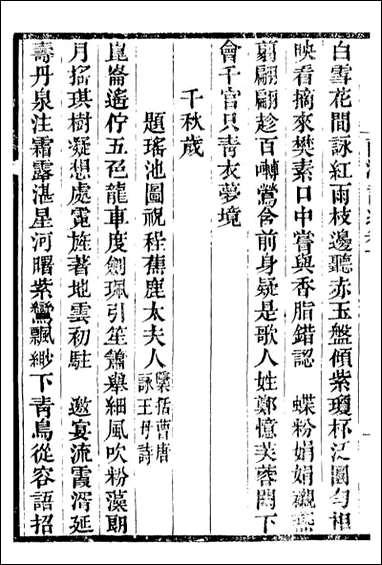 白雪花間詠紅雨枝邊聽赤玉盤傾紫瓊杯泛圓勻相
映看摘來樊素口中嘗與香脂錯認　蝶粉娟娟襯燕
翦翩翩趁百囀鶯含前身疑是歌人姓鄭憶芙蓉閣下
會千官只青衣夢境
千秋歲
題瑤池圖祝程蕉鹿太夫人檃括曹唐詠王母詩
崑崙遙佇五色龍車度劍珮引笙簫舉細風吹粉藻朗
月搖琪樹凝想處霓旌著地雲初駐　邀宴流霞湑延
壽丹泉注霜露湛星河曙紫鸞飄緲下青鳥從容語招